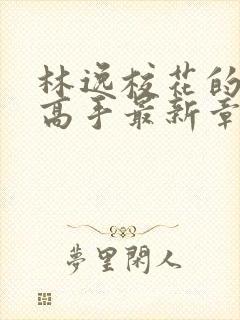 林逸校花的
高手最新章
夢里閑人